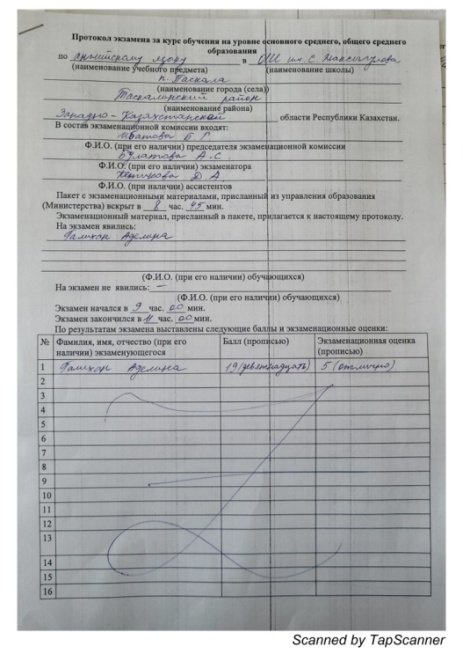 Протокол экзамена за курс обучения на уровне основного среднего, общего среднего
образования
по английскому языку в ОШ им. С.
(наименование учебного предмета) (наименование школы)
п. Таскала
(наименование города (села))
Таскалинский район
(наименование района)
Западно-Казахстанской области Республики Казахстан.
В состав экзаменационной комиссии входят:
Б Г
Ф.И.О. (при его наличии) председателя экзаменационной комиссии
Булатова А.С
Ф.И.О. (при его наличии) экзаменатора
Д А
Ф.И.О. (при наличии) ассистентов
Пакет с экзаменационными материалами, присланный из управления образования
(Министерства) вскрыт в 8 час. 45 мин.
Экзаменационный материал, присланный в пакете, прилагается к настоящему протоколу.
На экзамен явились:
Аделина
(Ф.И.О. (при его наличии) обучающихся)
На экзамен не явились: —
(Ф.И.О. (при его наличии) обучающихся)
Экзамен начался в 9 час. 00 мин.
Экзамен закончился в 11 час. 00 мин.
По результатам экзамена выставлены следующие баллы и экзаменационные оценки:
№ Фамилия, имя, отчество (при его наличии) экзаменующегося Балл (прописью) Экзаменационная оценка (прописью)
1 Аделина 19 (девятнадцать) 5 (отлично)
2
3
4
5
6
7
8
9
10
11
12
13
14
15
16
Scanned by TapScanner